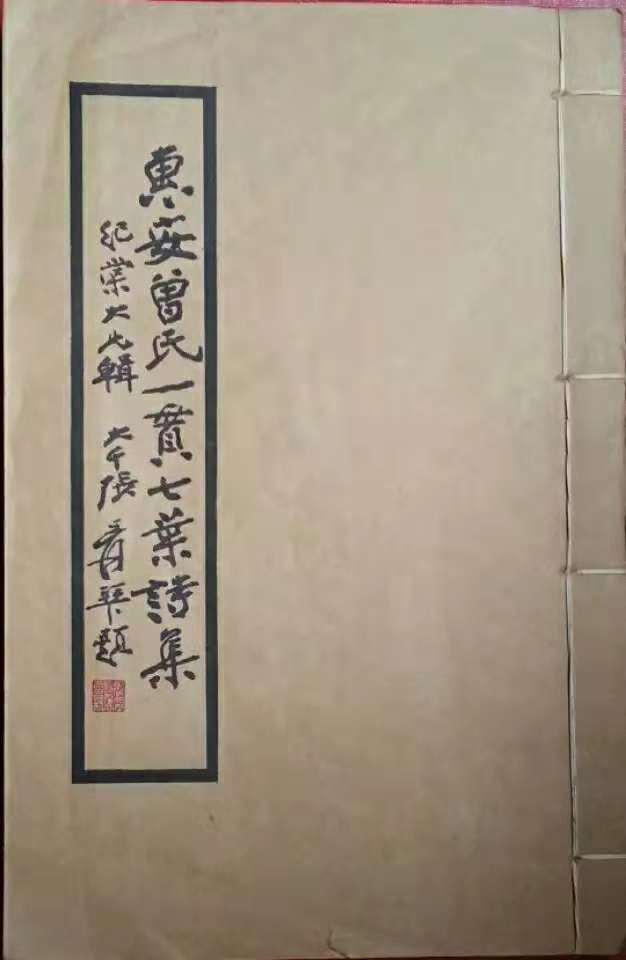 惠安曾氏一貫七葉詩集
紀業大兄輯 大千張爰拜題